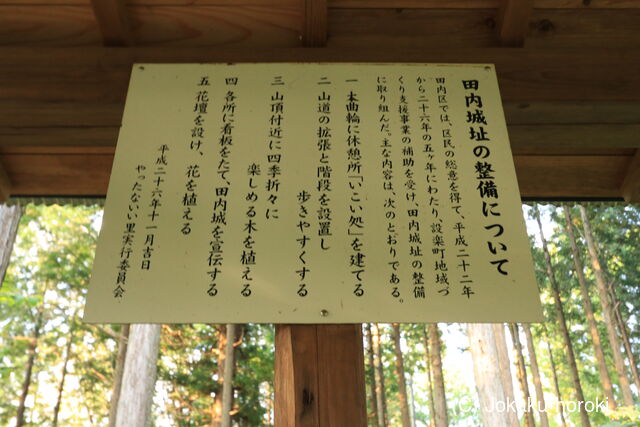 田内城址の整備について
田内区では、区民の総意を得て、平成二十二年
から二十六年の五ヶ年にわたり、設楽町地域づ
くり支援事業の補助を受け、田内城址の整備
に取り組んだ。主な内容は、次のとおりである。
一 本曲輪に休憩所「いこい処」を建てる
二 山道の拡張と階段を設置し
歩きやすくする
三 山頂付近に四季折々に
楽しめる木を植える
四 各所に看板をたて、田内城を宣伝する
五 花壇を設け、花を植える
平成二十六年十一月吉日
やったないい里実行委員会
(C) Jokaku-horoki